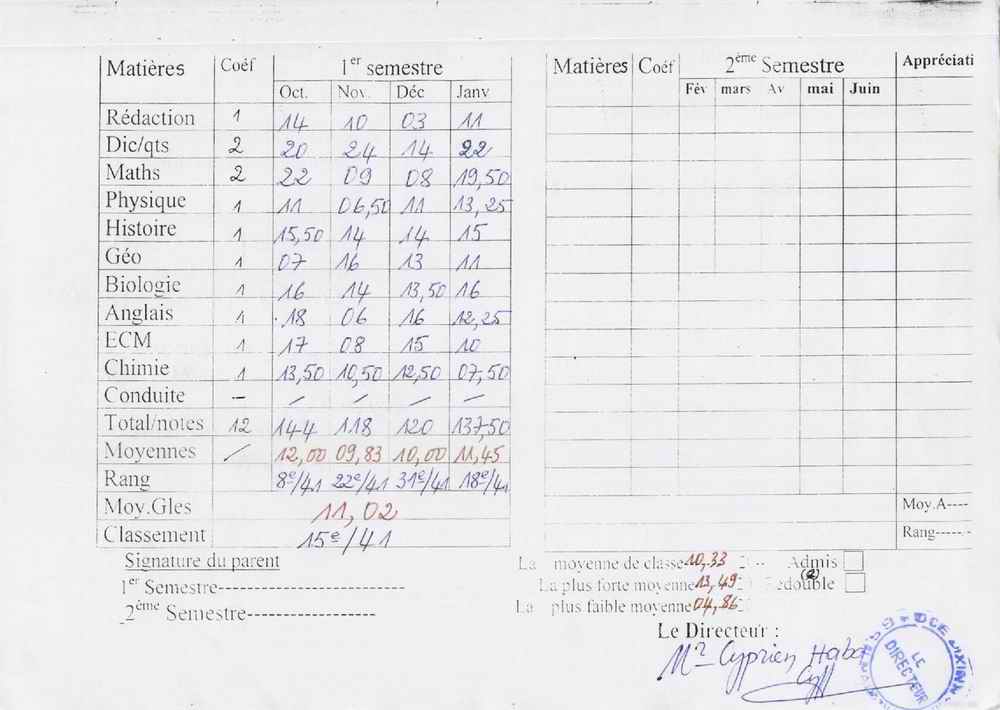 Matières Coéf 1er semestre
Oct. Nov. Déc Janv
Rédaction 1 14 10 03 11
Dic/qts 2 20 24 14 22
Maths 2 22 09 08 19,50
Physique 1 11 06,50 11 13,25
Histoire 1 15,50 14 14 15
Géo 1 07 16 13 11
Biologie 1 16 14 13,50 16
Anglais 1 18 06 16 12,25
ECM 1 17 08 15 10
Chimie 1 13,50 10,50 12,50 07,50
Conduite - / / / /
Total/notes 12 144 118 120 137,50
Moyennes / 12,00 09,83 10,00 11,45
Rang 8e/41 22e/41 31e/41 18e/41
Moy.Gles 11,02
Classement 15e/41
Signature du parent
1er Semestre--------------------
2ème Semestre----------------
Matières Coéf 2ème Semestre Appréciati
Fév mars Av mai Juin
Moy.A----
Rang-----
La moyenne de classe 10,33 Admis
La plus forte moyenne 13,49 Redouble
La plus faible moyenne 04,86
Le Directeur :
Mr Cyprien Haba
LE DIRECTEUR